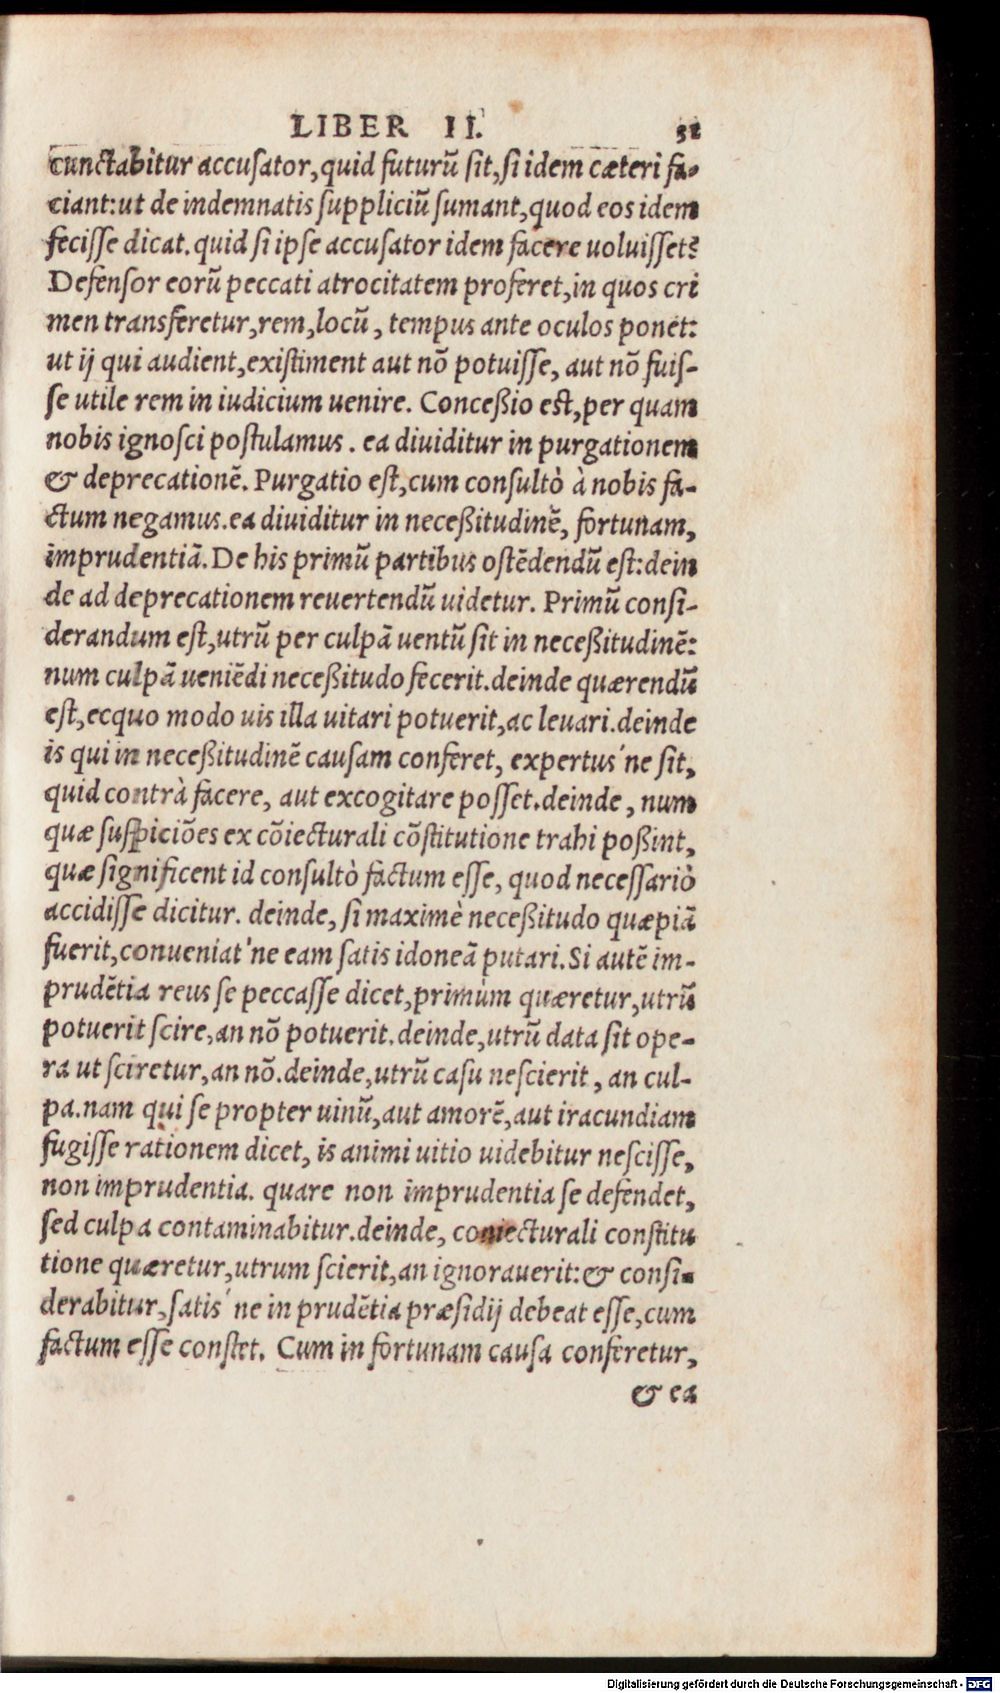 LIBER II. 32
cunctabitur accusator, quid futurũ sit, si idem cæteri fa-
ciant: ut de indemnatis suppliciũ sumant, quod eos idem
fecisse dicat. quid si ipse accusator idem facere uoluisset?
Defensor eorũ peccati atrocitatem proferet, in quos cri
men transferetur, rem, locũ, tempus ante oculos ponet:
ut ij qui audient, existiment aut nõ potuisse, aut nõ fuis-
se utile rem in iudicium uenire. Conceßio est, per quam
nobis ignosci postulamus. ea diuiditur in purgationem
& deprecationẽ. Purgatio est, cum consultò à nobis fa-
ctum negamus. ea diuiditur in neceßitudinẽ, fortunam,
imprudentiã. De his primũ partibus ostẽdendũ est: dein
de ad deprecationem reuertendũ uidetur. Primũ consi-
derandum est, utrũ per culpã uentũ sit in neceßitudinẽ:
num culpã ueniẽdi neceßitudo fecerit. deinde quærendũ
est, ecquo modo uis illa uitari potuerit, ac leuari. deinde
is qui in neceßitudinẽ causam conferet, expertus'ne sit,
quid contrà facere, aut excogitare posset. deinde, num
quæ suspiciões ex cõiecturali cõstitutione trahi poßint,
quæ significent id consultò factum esse, quod necessariò
accidisse dicitur. deinde, si maximè neceßitudo quæpiã
fuerit, conueniat'ne eam satis idoneã putari. Si autẽ im-
prudẽtia reus se peccasse dicet, primùm quæretur, utrũ
potuerit scire, an nõ potuerit. deinde, utrũ data sit ope-
ra ut sciretur, an nõ. deinde, utrũ casu nescierit, an cul-
pa. nam qui se propter uinũ, aut amorẽ, aut iracundiam
fugisse rationem dicet, is animi uitio uidebitur nescisse,
non imprudentia. quare non imprudentia se defendet,
sed culpa contaminabitur. deinde, coniecturali constitu
tione quæretur, utrum scierit, an ignorauerit: & consi-
derabitur, satis'ne in prudẽtia præsidij debeat esse, cum
factum esse constet. Cum in fortunam causa conferetur,
& ea
Digitalisierung gefördert durch die Deutsche Forschungsgemeinschaft - DFG